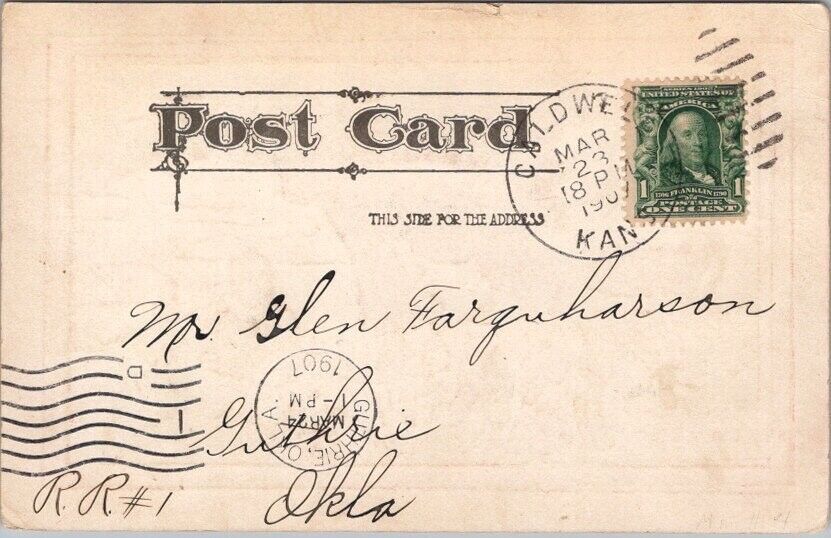 Post Card
THIS SIDE FOR THE ADDRESS
CALDWELL
MAR
23
8 PM
190
KANS
SERIES 1902
UNITED STATES OF
AMERICA
1706 FRANKLIN 1790
1 POSTAGE 1
ONE CENT
Mr Glen Farquharson
Guthrie
Okla
R.R.#1
GUTHRIE, OKLA.
MAR 24
1-PM
1907
D
1